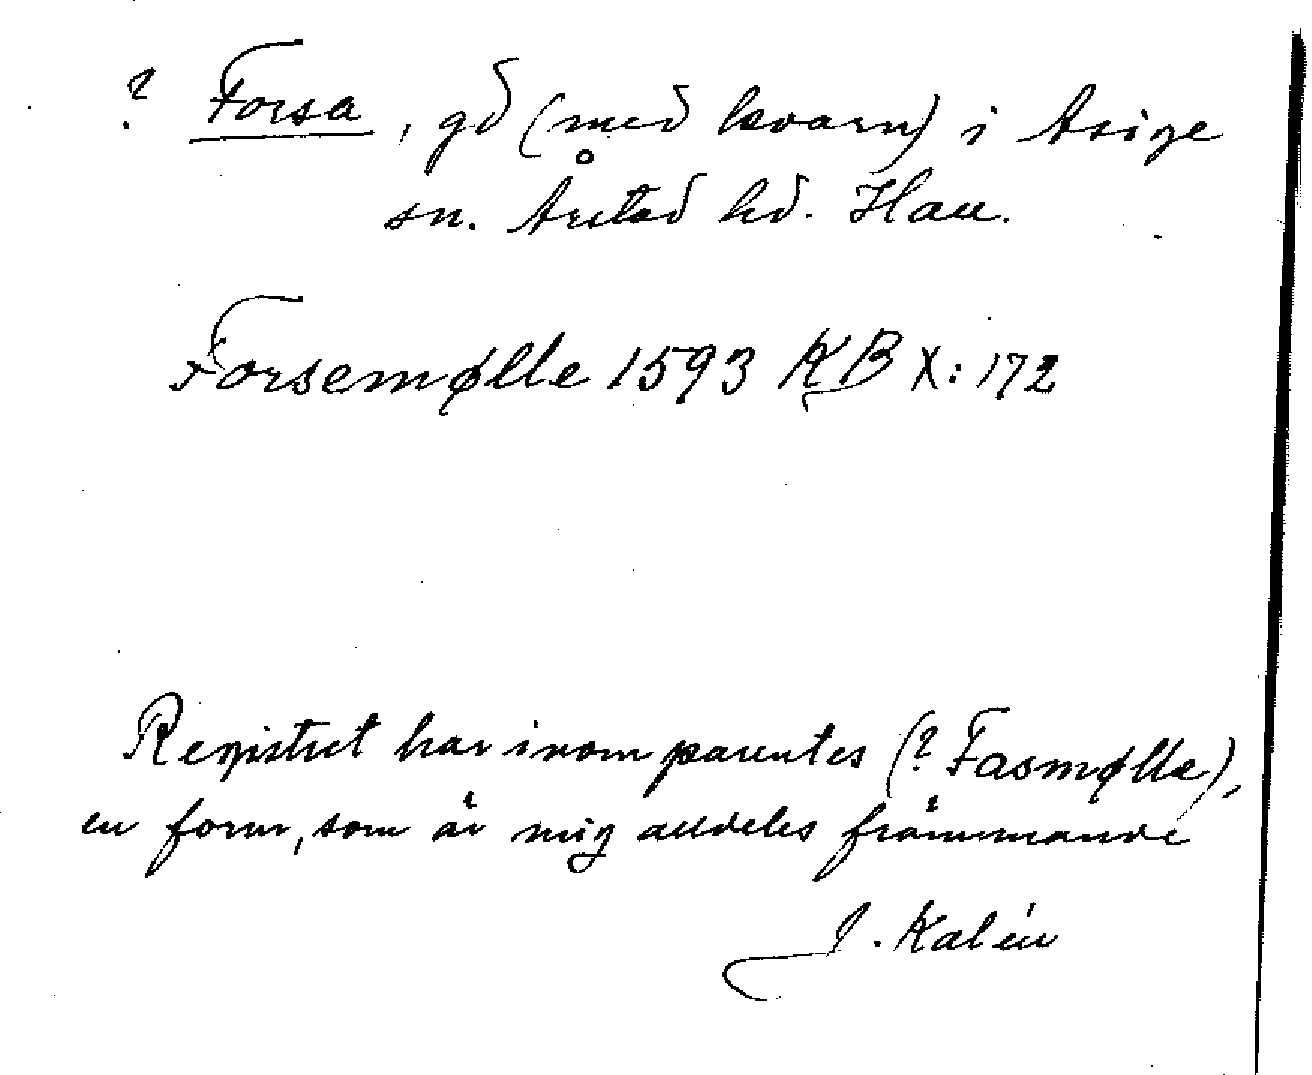 ? Forsa, gd (med kvarn) i Asige
sn. Årstad hd. Hall.
Forsemølle 1593 KB X: 172
Registret har inom parentes (? Fasmølle),
en form, som är mig alldeles främmande
J. Kalén